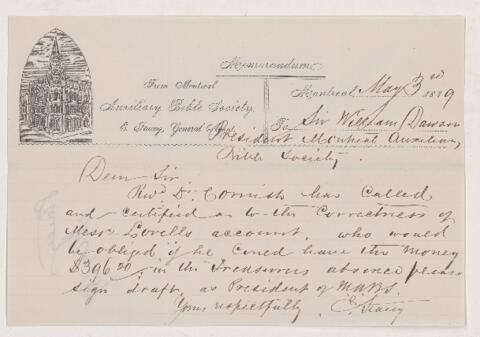 Memorandum
From Montreal
Auxiliary Bible Society,
E. Tavey, General Agent.
Montreal May 3rd 1889
To Sir William Dawson
President Montreal Auxiliary
Bible Society.
Dear Sir
Revd Dr Cornish has called
and certified as to the correctness of
Messrs Lovells account, who would
be obliged if he could have the money
$396.20, in the Treasurers absence please
sign draft, as President of MABS.
Yours respectfully,